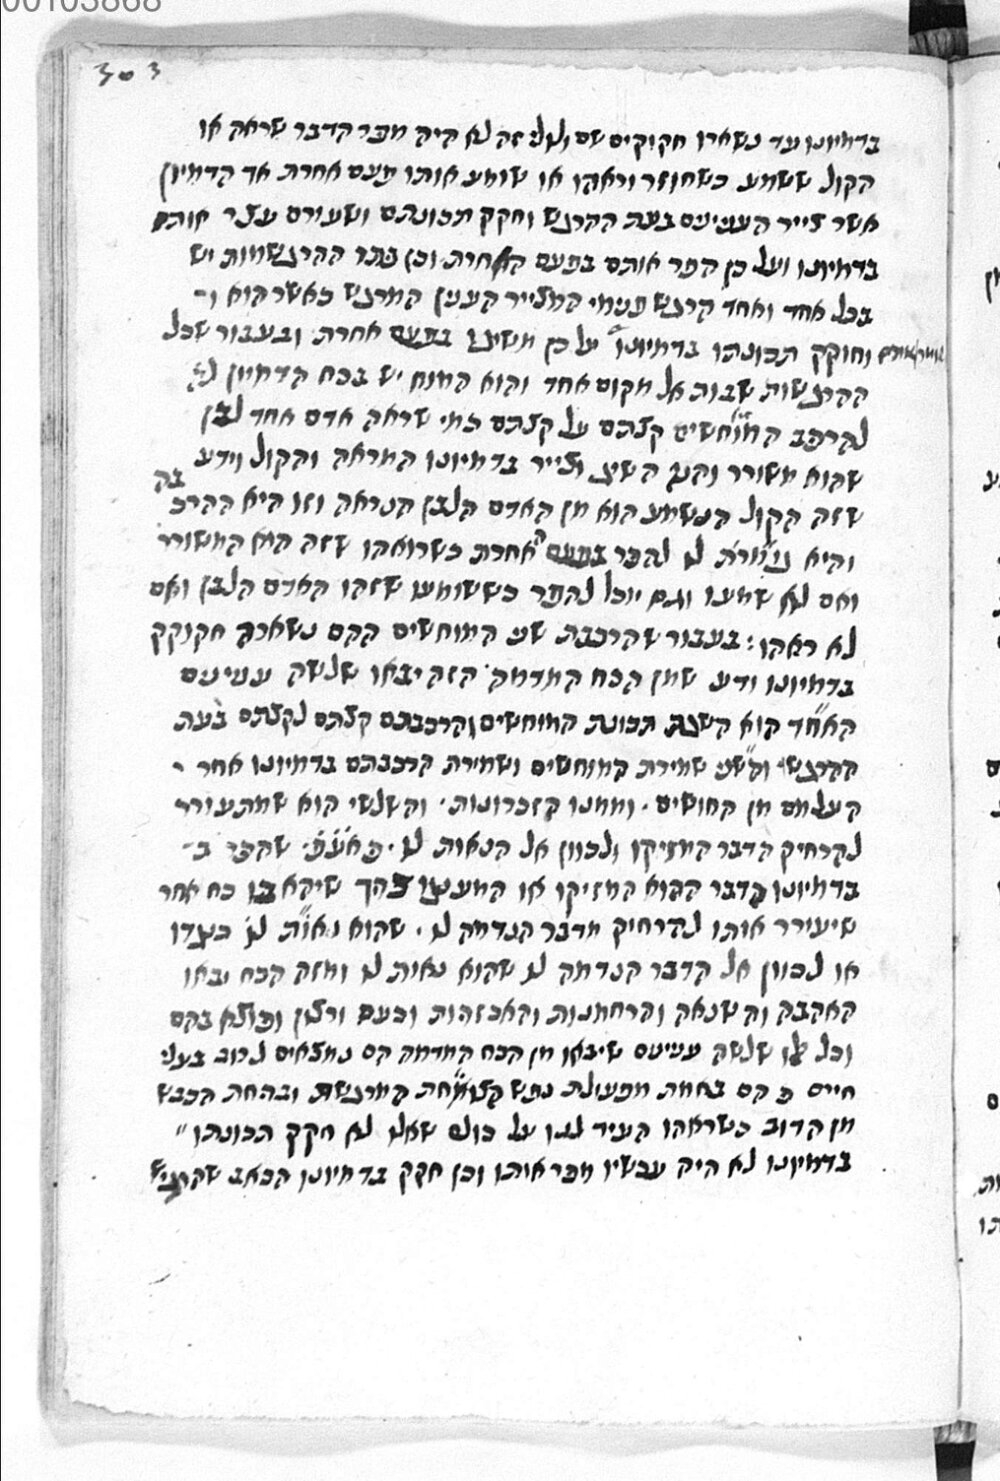 00103868
303
בדמיונו עד נשארו חקוקים שם ולולי זה לא היה מכר הדבר שראה או
הקול ששמע כשחוזר וראהו או שומע אותו פעם אחרת אך הדמיון
אשר צייר העניינים בעת ההרגש וחקק תכונתם ושעורם עצר אותם
בדמיונו ועל כן הכר אותם בפעם האחרת וכן בתר ההרגשמות יש
בכל אחד ואחד הרגש פנימי המצייר הענין המרגש כאשר הוא ו
וחוקק תכונתו בדמיונו על כן משיגו בפעם אחרת ובעבור שכל
ההרגשות שבות אל מקום אחד והוא המוח יש בכח הדמיון לא
להרכב המוחשים קצתם על קצתם כמי שראה אדם אחד לבן
שהוא משורר והנה השיג וצייר בדמיונו המראה והקול וידע
שזה הקול הנשמע הוא מן האדם הלבן הנראה וזו היא ההרכ בה
והיא לו להכר בפעם אחרת כשרואהו שזה הוא המשורר
ואם לא שמעו וגם יוכל להכר כששומעו שזהו האדם הלבן ואם
לא ראהו : בעבור שהרכבת שני המוחשים ההם נשארה חקוקק
בדמיונו ודע שמן הכח המדמה הזה יבאו שלשה עניינים
האחד הוא השגת תכונת המוחשים והרכבתם קצתם לקצתם בעת
ההרגש והשני שמירת המוחשים ושמירת הרכבתם בדמיונו אחר
העלמם מן החושים . וממנו הזכרונות . והשלשי הוא שמתעורר
להרחיק הדבר המזיקו ולכוון אל הנאות לו . שהכר ב
בדמיונו הדבר ההוא המזיקו או המענגו צהך שיקא בו כח אחר
שיעורר אותו להרחיק מדבר הנדמה לו . שהוא נאות לו כנגדו
או לכוון אל הדבר הנדמה לו שהוא נאות לו ומזה הכח יבאו
האהבה והשנאה והרחמנות והאכזריות וכעס ורצון וכיוצא בהם
וכל אלו שלשה עניינים שיבאו מן הכח המדמה הם נמצאים לרוב בעלי
חיים הם באמת מפעולת נפש המרגשת ובהחת הכבש
מן הדוב כשראהו העיד לנו על כולם שאלו לא חקק תכונתו
בדמיונו לא היה עכשיו מכר אותו וכן חקק בדמיונו הכאב שהרגיש